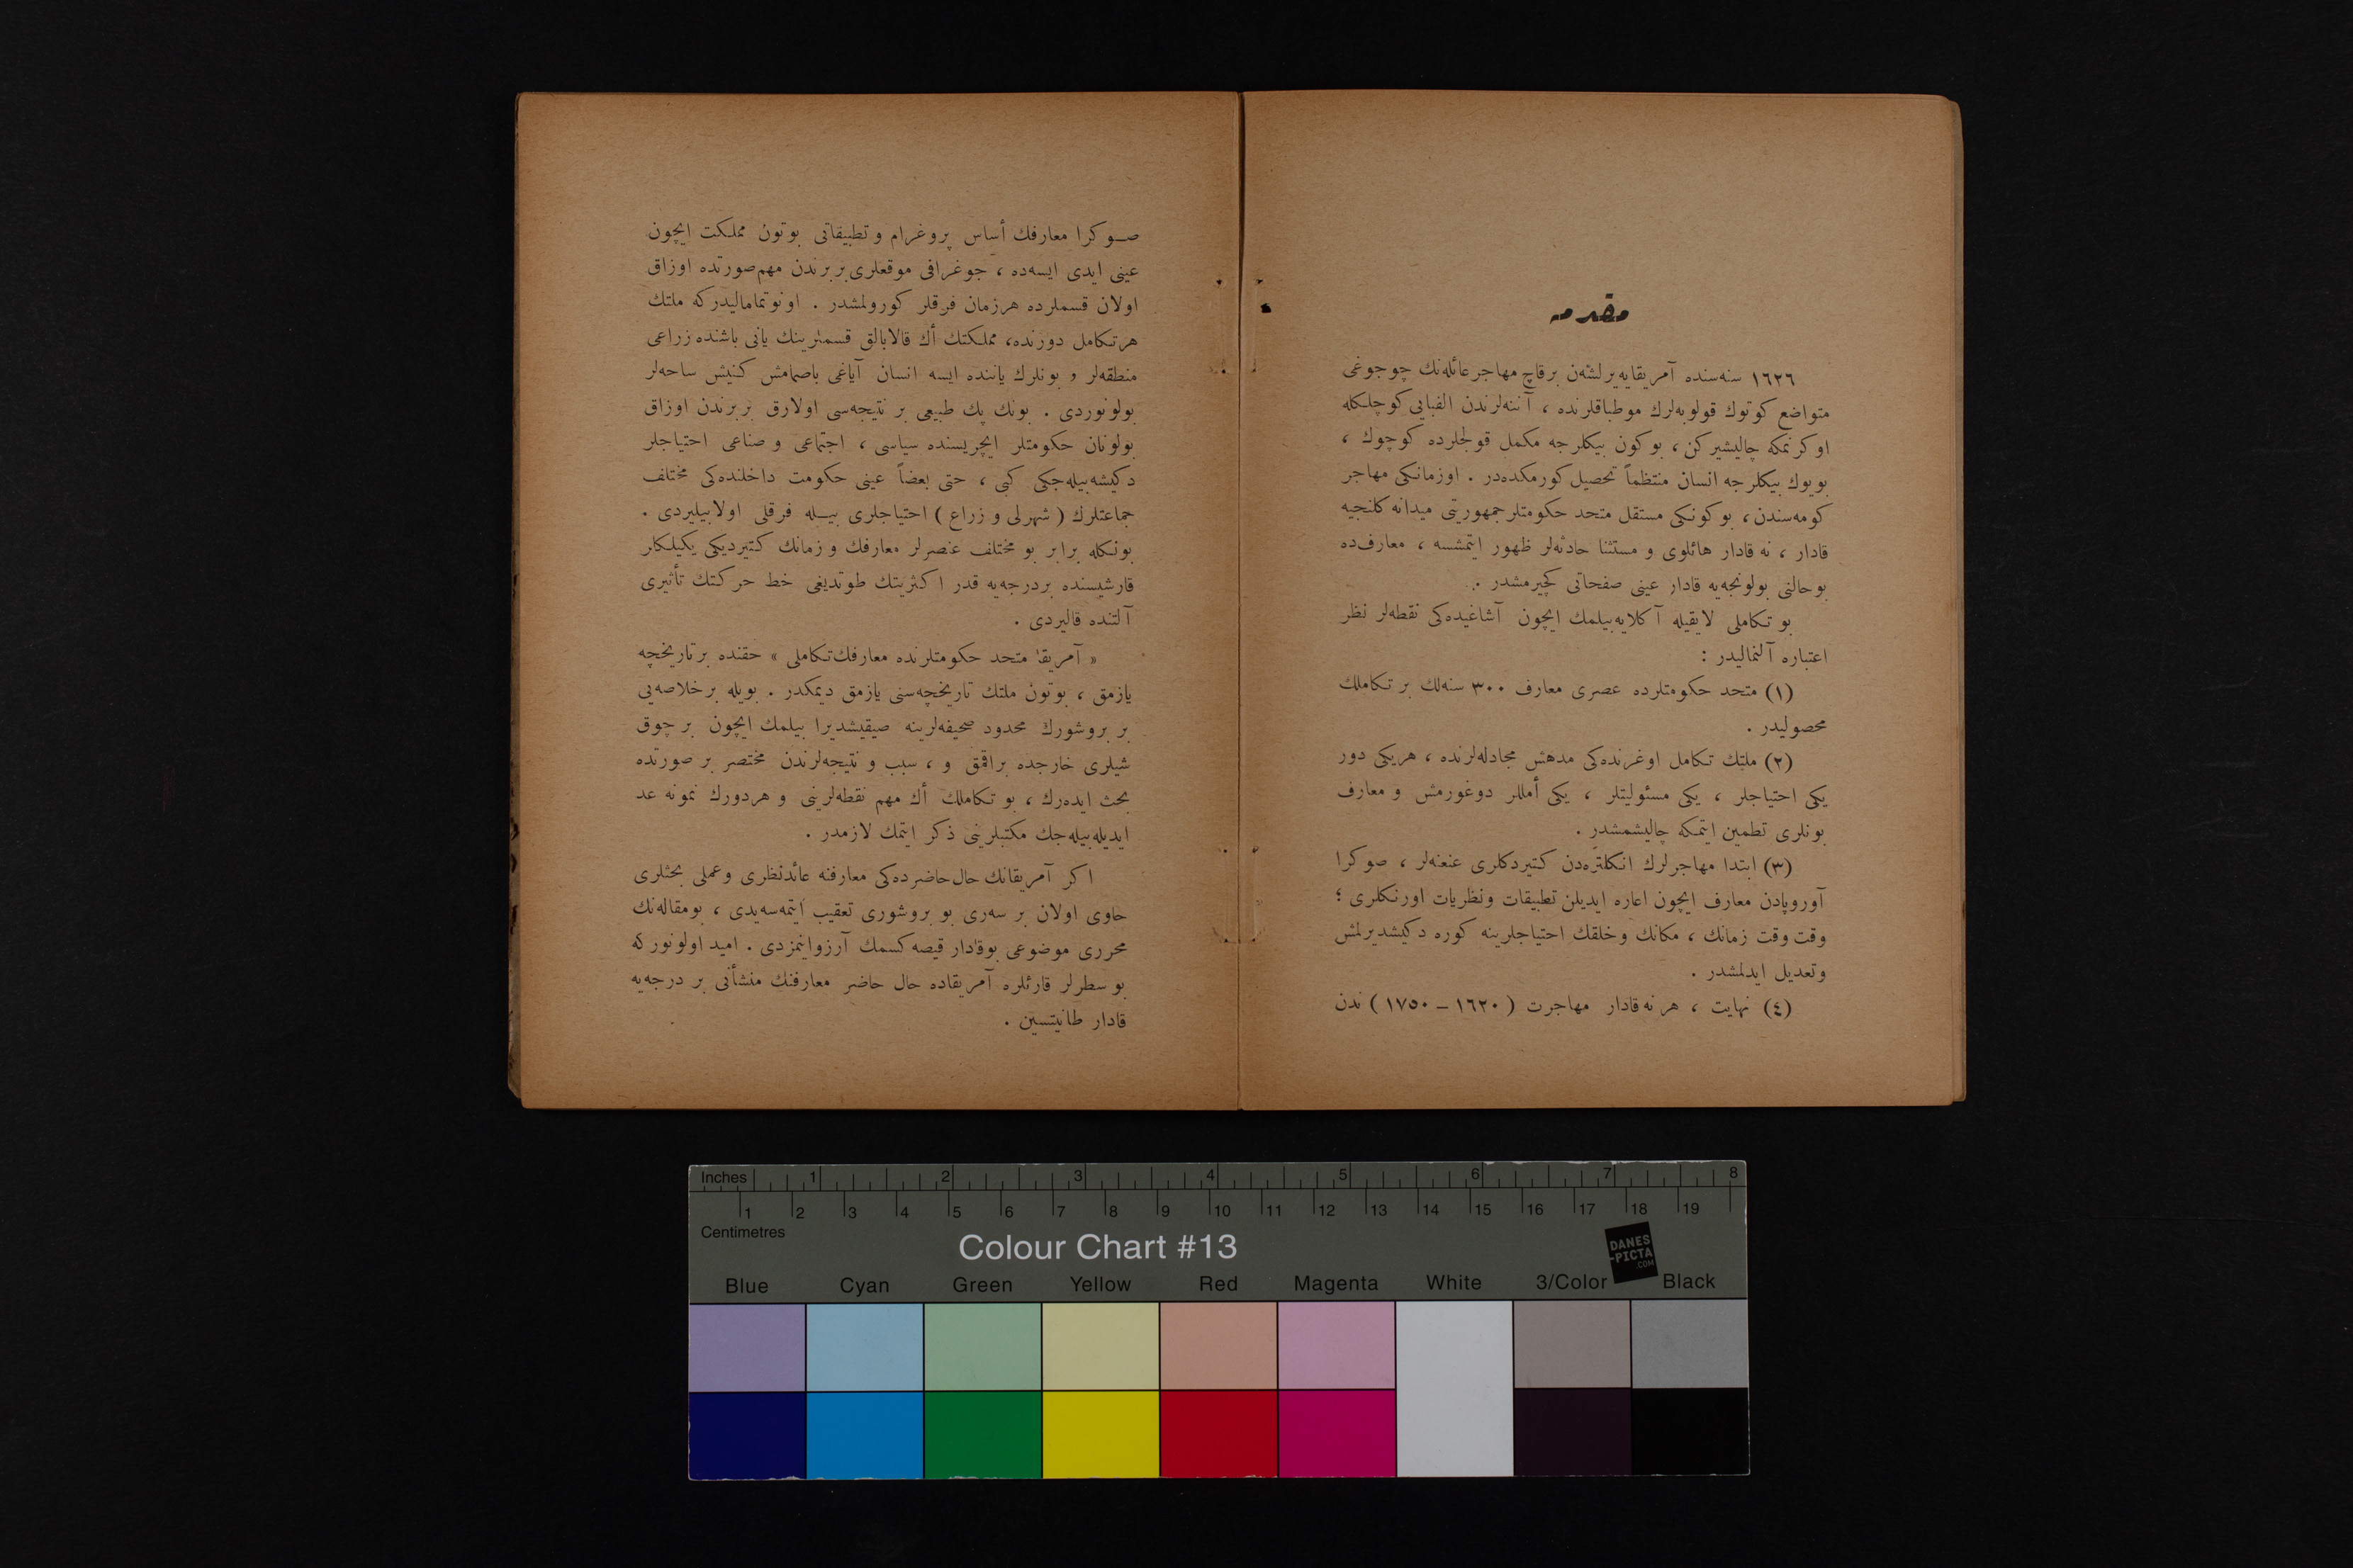 مقدمه
١٦٢٦ سنه‌سنده آمریقایه‌یرلشه‌ن برقاچ مهاجرعائله‌نك چوجوغی
متواضع كوتوك قولوبه‌لرك موطباقلرنده ، آننه‌لرندن الفبایی كوچلكله
اوكرنمكه چالیشیركن ، بوكون بیكلرجه مكمل قولجلرده كوچوك ،
بویوك بیكلرجه انسان منتظماً تحصیل كورمكده‌در . اوزمانكی مهاجر
كومه‌سندن ، بوكونكی مستقل متحد حكومتلرجمهوریتی میدانه كلنجیه
قادار ، نه قادار هائلوی و مستثنا حادثه‌لر ظهور ایتمشسه ، معارف‌ده
بوحالنی بولونجه‌یه قادار عینی صفحاتی كچیرمشدر .
بو تكاملی لایقیله آكلایه‌بیلمك ایچون آشاغیده‌كی نقطه‌لر نظر
اعتباره آلنمالیدر :
(١) متحد حكومتلرده عصری معارف ٣٠٠ سنه‌لك بر تكاملك
محصولیدر .
(٢) ملتك تكامل اوغرنده‌كی مدهش مجادله‌لرنده ، هریكی دور
یكی احتیاجلر ، یكی مسئولیتلر ، یكی أمللر دوغورمش و معارف
بونلری تطمین ایتمكه چالیشمشدر .
(٣) ابتدا مهاجرلرك انكلتره‌دن كتیردكلری عنعنه‌لر ، صوكرا
آوروپادن معارف ایچون اعاره ایدیلن تطبیقات ونظریات اورنكلری ؛
وقت وقت زمانك ، مكانك وخلقك احتیاجلرینه كوره دكیشدیرلمش
وتعدیل ایدلمشدر .
(٤) نهایت ، هر نه قادار مهاجرت ( ١٦٢٠ — ١٧٥٠ ) ندن
صوكرا معارفك أساس پروغرام و تطبیقاتی بوتون مملكت ایچون
عینی ایدی ایسه‌ده ، جوغرافی موقعلری بربرندن مهم صورتده اوزاق
اولان قسملرده هرزمان فرقلر كورولمشدر . اونوتمامالیدركه ملتك
هرتكامل دورنده، مملكتك أك قالابالق قسملرینك یانی باشنده زراعی
منطقه‌لر و بونلرك یاننده ایسه انسان آیاغی باصمامش كنیش ساحه‌لر
بولونوردی . بونك پك طبیعی بر نتیجه‌سی اولارق بربرندن اوزاق
بولونان حكومتلر ایچریسنده سیاسی ، اجتماعی و صناعی احتیاجلر
دكیشه‌بیله‌جكی كبی ، حتی بعضاً عینی حكومت داخلنده‌كی مختلف
جماعتلرك ( شهرلی و زراع ) احتیاجلری بیله فرقلی اولابیلیردی .
بونكله برابر بو مختلف عنصرلر معارفك و زمانك كتیردیكی یكیلكلر
قارشیسنده بردرجه‌یه قدر اكثریتك طوتدیغی خط حركتك تأثیری
آلتنده قالیردی .
« آمریقا متحد حكومتلرنده معارفك‌تكاملی » حقنده برتاریخچه
یازمق ، بوتون ملتك تاریخچه‌سنی یازمق دیمكدر . بویله برخلاصه‌یی
بر بروشورك محدود صحیفه‌لرینه صیقیشدیرا بیلمك ایچون برچوق
شیلری خارجده براقمق و ، سبب و نتیجه‌لرندن مختصر بر صورتده
بحث ایده‌رك ، بو تكاملك أك مهم نقطه‌لرینی و هردورك نمونه عد
ایدیله‌بیله‌جك مكتبلرینی ذكر ایتمك لازمدر .
اكر آمریقانك حال‌حاضرده‌كی معارفنه عائدنظری وعملی بحثلری
حاوی اولان بر سه‌ری بو بروشوری تعقیب ایتمه‌سه‌یدی ، بومقاله‌نك
محرری موضوعی بوقادار قیصه كسمك آرزوایتمزدی . امید اولونوركه
بو سطرلر قارئلره آمریقاده حال حاضر معارفنك منشأنی بر درجه‌یه
قادار طانیتسین .
Inches 1 2 3 4 5 6 7 8
1 2 3 4 5 6 7 8 9 10 11 12 13 14 15 16 17 18 19
Centimetres
Colour Chart #13
DANES
-PICTA
.COM
Blue Cyan Green Yellow Red Magenta White 3/Color Black